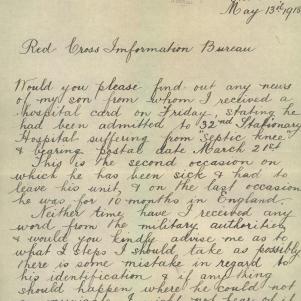 May 13th 1918
Red Cross Imformation Bureau
Would you please find out any news
of my son from whom I received a
hospital card on Friday, stating he
had been admitted to 32nd Stationary
Hospital suffering from "septic knee"
& bearing postal date March 21st
This is the second occasion on
which he has been sick & had to
leave his unit, & on the last occasion
he was for 10 months in England.
Neither time, have I received any
word from the military authorities,
& would you kindly advise me as to
what steps I should take as possibly
there is some mistake in regard to
his identification & if any thing
should happen where he could not